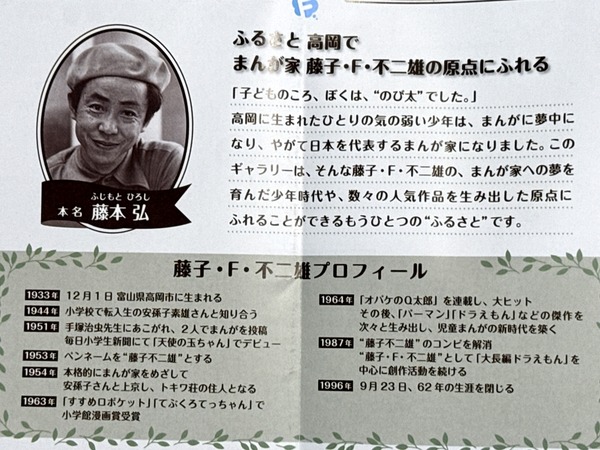 ふるさと 高岡で
まんが家 藤子・F・不二雄の原点にふれる
「子どものころ、ぼくは、“のび太”でした。」
高岡に生まれたひとりの気の弱い少年は、まんがに夢中に
なり、やがて日本を代表するまんが家になりました。この
ギャラリーは、そんな藤子・F・不二雄の、まんが家への夢を
育んだ少年時代や、数々の人気作品を生み出した原点に
ふれることができるもうひとつの“ふるさと”です。
ふじもと ひろし
本名 藤本 弘
藤子・F・不二雄プロフィール
1933年 12月1日 富山県高岡市に生まれる
1944年 小学校で転入生の安孫子素雄さんと知り合う
1951年 手塚治虫先生にあこがれ、2人でまんがを投稿
毎日小学生新聞にて「天使の玉ちゃん」でデビュー
1953年 ペンネームを“藤子不二雄”とする
1954年 本格的にまんが家をめざして
安孫子さんと上京し、トキワ荘の住人となる
1963年 「すすめロボケット」「てぶくろてっちゃん」で
小学館漫画賞受賞
1964年 「オバケのQ太郎」を連載し、大ヒット
その後、「パーマン」「ドラえもん」などの傑作を
次々と生み出し、児童まんがの新時代を築く
1987年 “藤子不二雄”のコンビを解消
“藤子・F・不二雄”として「大長編ドラえもん」を
中心に創作活動を続ける
1996年 9月23日、62年の生涯を閉じる